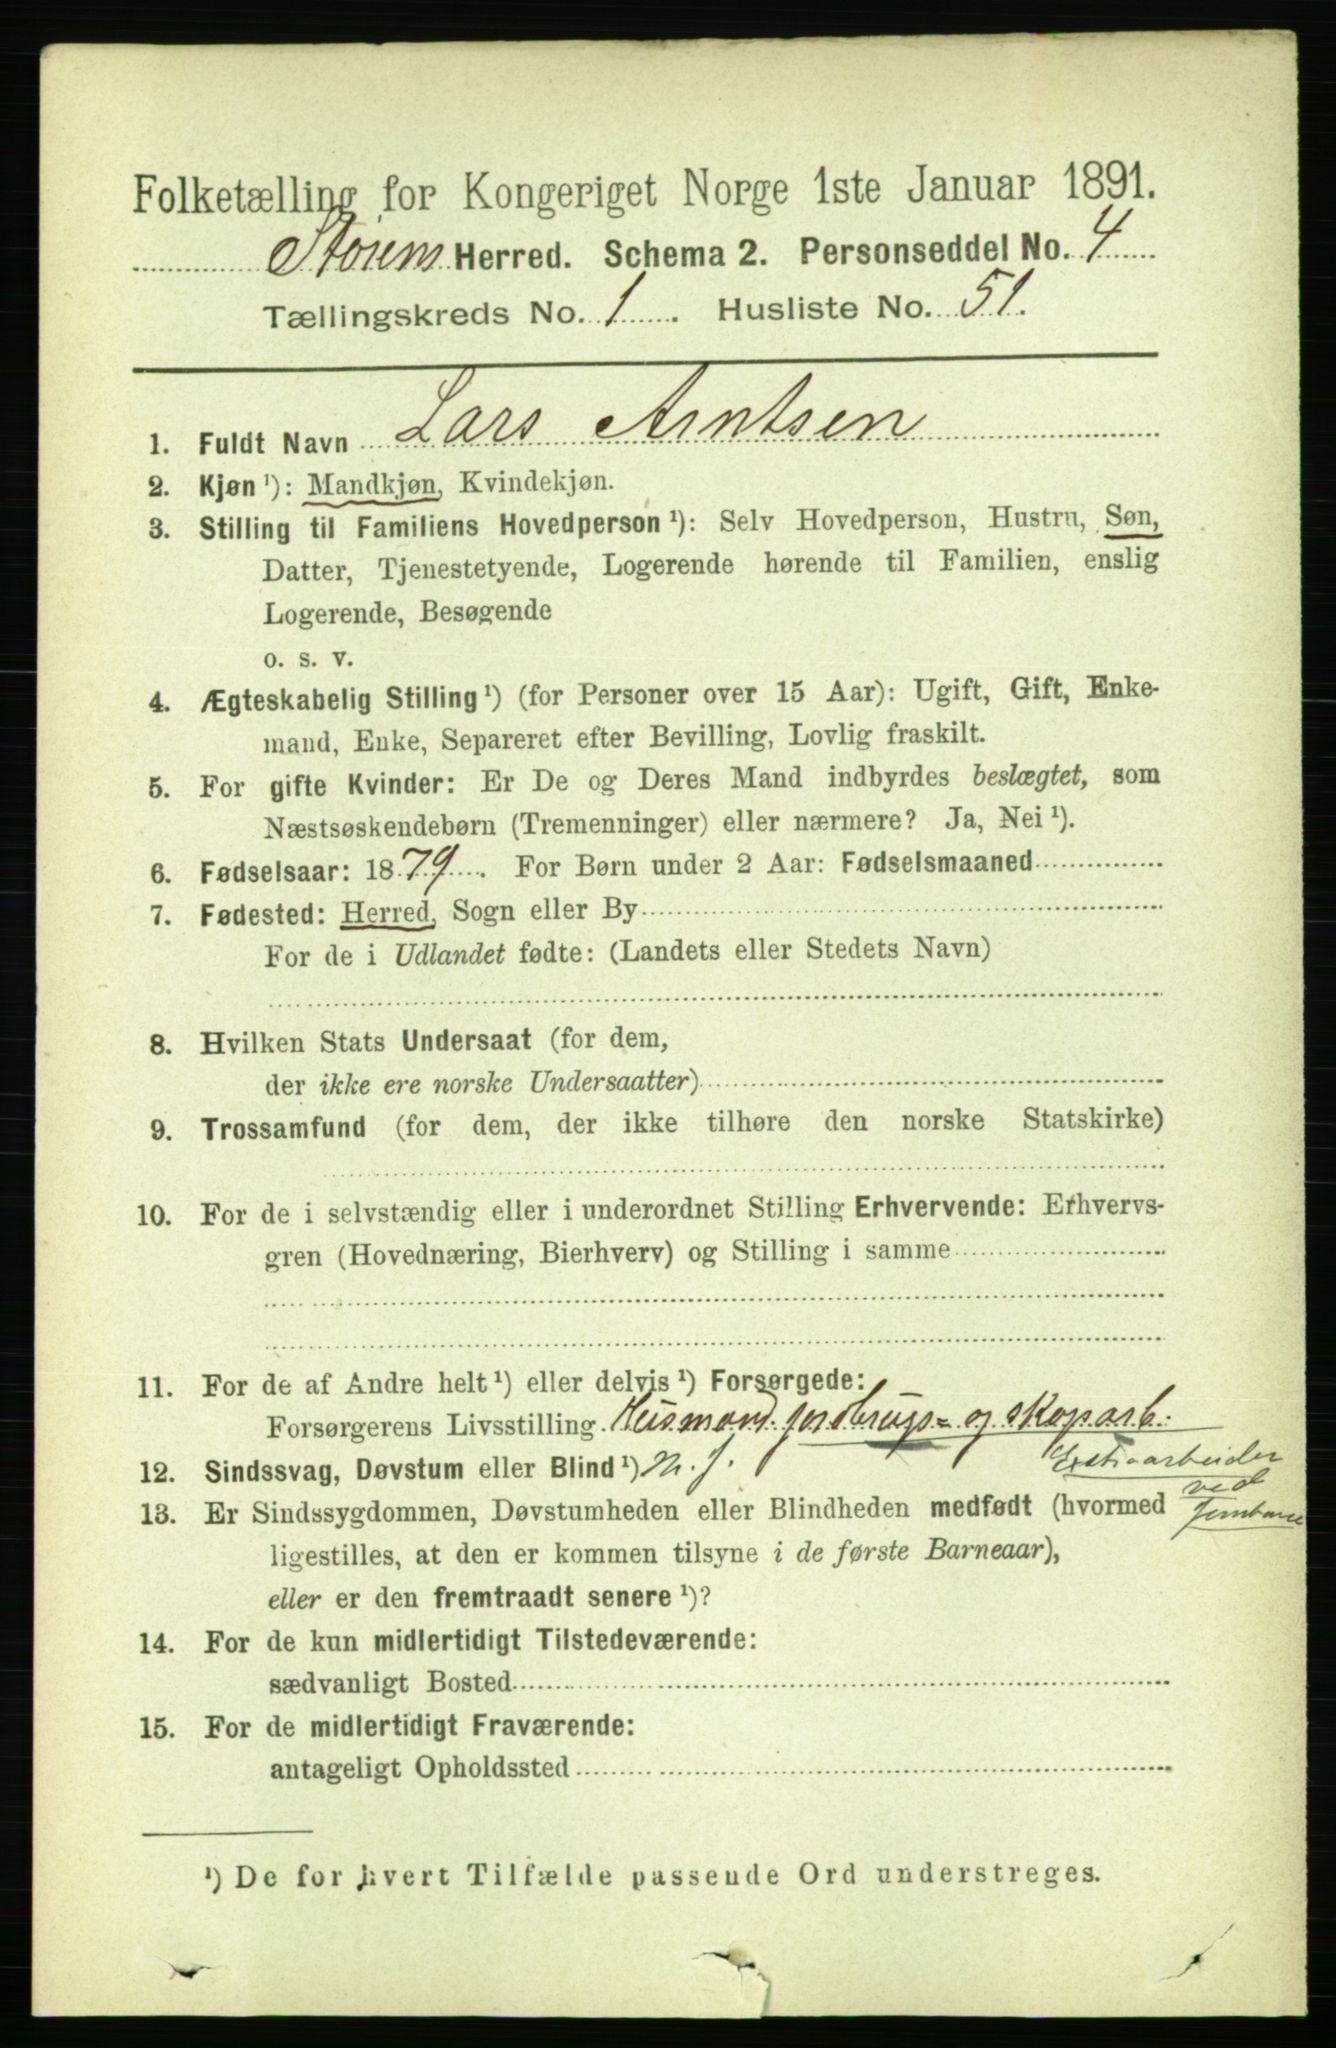 Folketælling for Kongeriget Norge 1ste Januar 1891.
Støren Herred. Schema 2. Personseddel No. 4
Tællingskreds No. 1. Husliste No. 51.
1. Fuldt Navn Lars Arntsen
2. Kjøn ¹): Mandkjøn, Kvindekjøn.
3. Stilling til Familiens Hovedperson ¹): Selv Hovedperson, Hustru, Søn,
Datter, Tjenestetyende, Logerende hørende til Familien, enslig
Logerende, Besøgende
o. s. v.
4. Ægteskabelig Stilling ¹) (for Personer over 15 Aar): Ugift, Gift, Enke-
mand, Enke, Separeret efter Bevilling, Lovlig fraskilt.
5. For gifte Kvinder: Er De og Deres Mand indbyrdes beslægtet, som
Næstsøskendebørn (Tremenninger) eller nærmere? Ja, Nei ¹).
6. Fødselsaar: 1879. For Børn under 2 Aar: Fødselsmaaned
7. Fødested: Herred, Sogn eller By
For de i Udlandet fødte: (Landets eller Stedets Navn)
8. Hvilken Stats Undersaat (for dem,
der ikke ere norske Undersaatter)
9. Trossamfund (for dem, der ikke tilhøre den norske Statskirke)
10. For de i selvstændig eller i underordnet Stilling Erhvervende: Erhvervs-
gren (Hovednæring, Bierhverv) og Stilling i samme
11. For de af Andre helt ¹) eller delvis ¹) Forsørgede:
Forsørgerens Livsstilling Husmand jordbrugs- og skogarb.
Extraarbeider
12. Sindssvag, Døvstum eller Blind ¹) n. j.
ved
13. Er Sindssygdommen, Døvstumheden eller Blindheden medfødt (hvormed
Jernbane
ligestilles, at den er kommen tilsyne i de første Barneaar),
eller er den fremtraadt senere ¹)?
14. For de kun midlertidigt Tilstedeværende:
sædvanligt Bosted
15. For de midlertidigt Fraværende:
antageligt Opholdssted
¹) De for hvert Tilfælde passende Ord understreges.